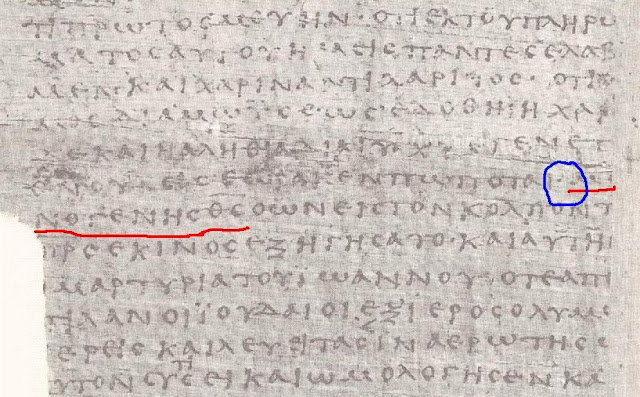 ΤΙ ΠΡΩΤΟϹ ΜΟΥ ΗΝ· ΟΤΙ ΕΚ ΤΟΥ ΠΛΗΡΩ
ΜΑΤΟϹ ΑΥΤΟΥ ΗΜΕΙϹ ΠΑΝΤΕϹ ΕΛΑΒ
ΜΕΝ· ΚΑΙ ΧΑΡΙΝ ΑΝΤΙ ΧΑΡΙΤΟϹ· ΟΤΙ
ΜΟϹ ΔΙΑ ΜΩΥϹΕΩϹ ΕΔΟΘΗ· Η ΧΑΡ
ΔΕ ΚΑΙ Η ΑΛΗΘΙΑ ΔΙΑ ΙΥ ΧΥ ΕΓΕΝΕΤ
ΟΥΔΕΙϹ ΠΩΠΟΤΕ·
ΝΟΓΕΝΗϹ ΘϹ Ο ΩΝ ΕΙϹ ΤΟΝ ΚΟΛΠΟΝ Τ
ΠΡϹ ΕΚΙΝΟϹ ΕΞΗΓΗϹΑΤΟ· ΚΑΙ ΑΥΤΗ
ΜΑΡΤΥΡΙΑ ΤΟΥ ΙΩΑΝΝΟΥ· ΟΤΕ ΑΠ
ΤΙΛΑΝ ΟΙ ΪΟΥΔΑΙΟΙ ΕΞ ΙΕΡΟϹΟΛΥΜΩ
ΕΡΕΙϹ ΚΑΙ ΛΕΥΕΙΤΑϹ ΙΝΑ ΕΡΩΤΗϹ
ΥΤΟΝ ϹΥ ΤΙϹ ΕΙ ΚΑΙ ΩΜΟΛΟΓΗϹΕΝ ΚΑ